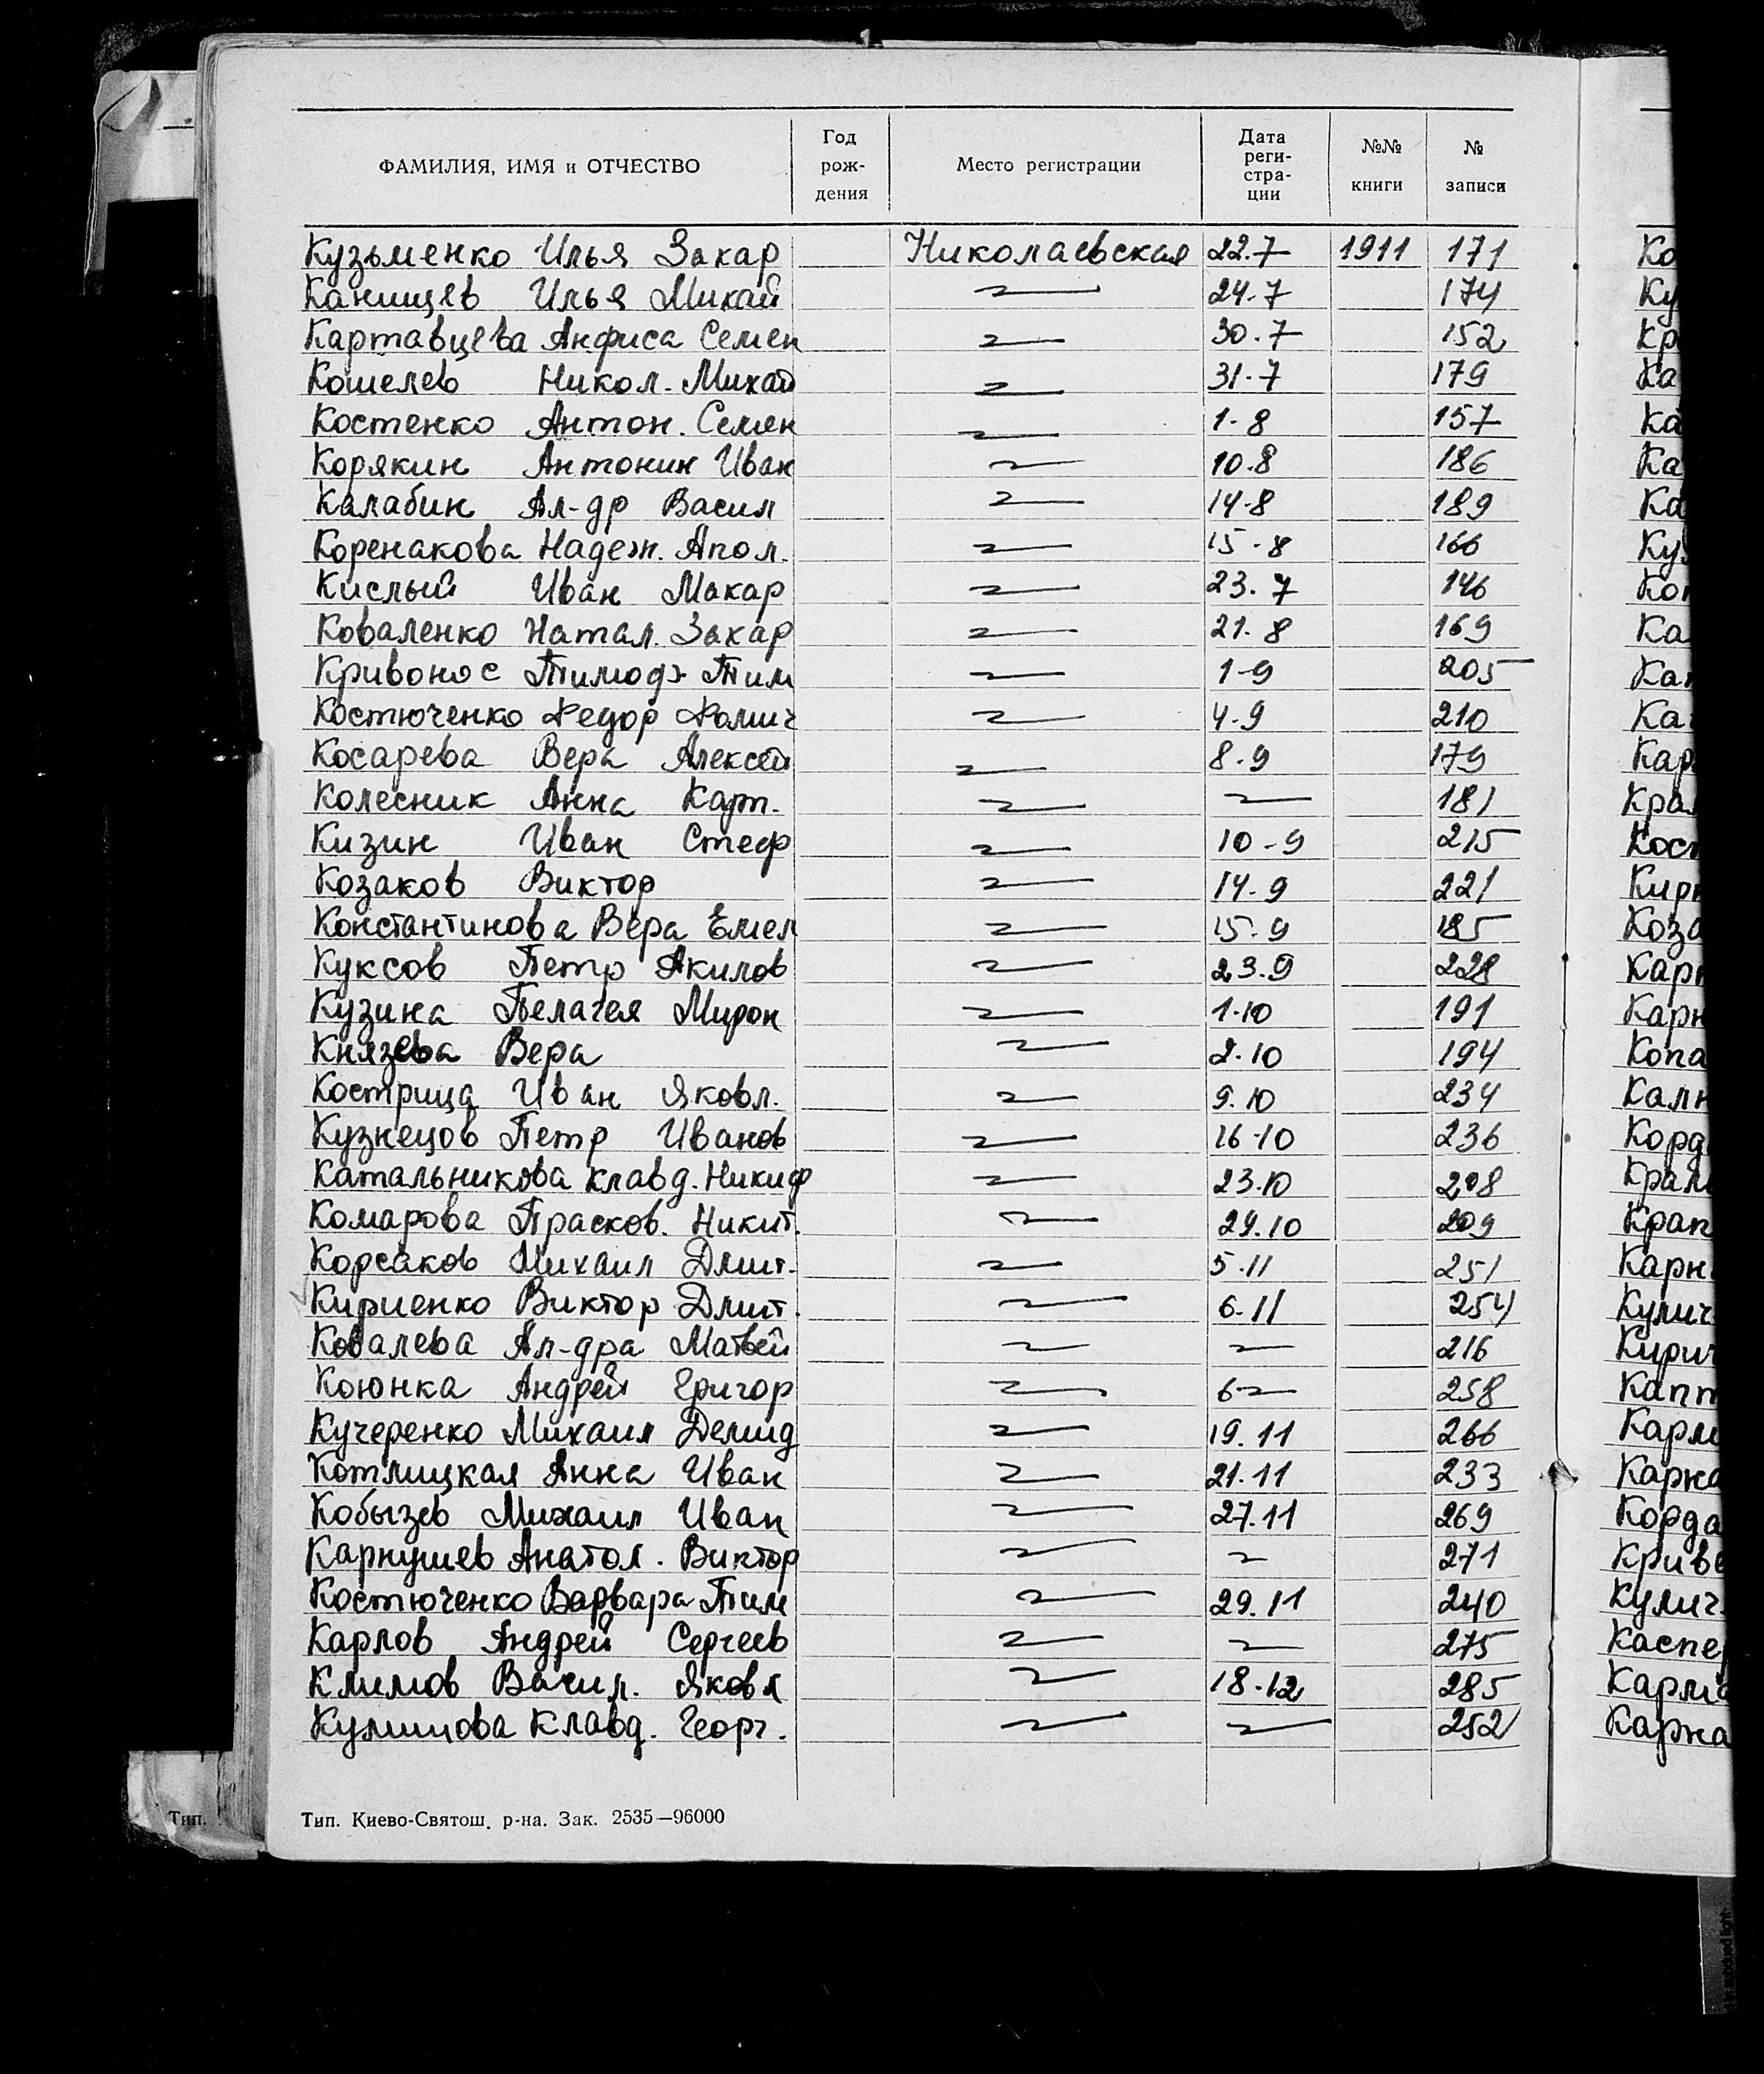 ФАМИЛИЯ, ИМЯ и ОТЧЕСТВО Год рож- дения Место регистрации Дата реги- стра- ции №№ книги № записи
Кузьменко Илья Захар Николаевская 22.7 1911 171 Ко
Канищев Илья Михай 24.7 174 Ку
Картавцева Анфиса Семен 30.7 152 Кр
Кошелев Никол. Михай 31.7 179 Ка
Костенко Антон. Семен 1.8 157 Ка
Корякин Антонин Иван 10.8 186 Ка
Калабин Ал-др Васил 14-8 189 Ка
Коренакова Надеж. Апол. 15.8 166 Куз
Кислый Иван Макар 23.7 146 Кон
Коваленко Натал. Захар 21.8 169 Ка
Кривонос Тимоф Тим 1-9 205 Ка
Костюченко Федор Фомич 4.9 210 Ка
Косарева Вера Алексей 8.9 179 Кар
Колесник Анна Карп. 181 Кра
Кизин Иван Стеф 10-9 215 Кост
Козаков Виктор 14.9 221 Кирп
Константинова Вера Емел 15.9 185 Коза
Куксов Петр Акилов 23.9 228 Карп
Кузина Пелагея Мирон 1.10 191 Карн
Князева Вера 2.10 194 Копа
Кострица Иван Яковл. 9.10 234 Калн
Кузнецов Петр Иванов 16.10 236 Корд
Катальникова Клавд. Никиф 23.10 208 Крам
Комарова Прасков. Никит. 29.10 209 Крап
Корсаков Михаил Дмит. 5.11 251 Карн
Кириенко Виктор Дмит. 6.11 254 Кулич
Ковалева Ал-дра Матвей 216 Кирич
Коюнка Андрей Григор 6 258 Капт
Кучеренко Михаил Демид 19.11 266 Карм
Котлицкая Анна Иван 21.11 233 Карна
Кобызев Михаил Иван 27.11 269 Корда
Карнушев Анатол. Виктор 271 Криве
Костюченко Варвара Тим 29.11 240 Кулич
Карлов Андрей Сергеев 275 Каспер
Климов Васил. Яковл 18.12 285 Карма
Клавд. Георг. 252 Карна
Тип. Тип. Киево-Святош. р-на. Зак. 2535—96000